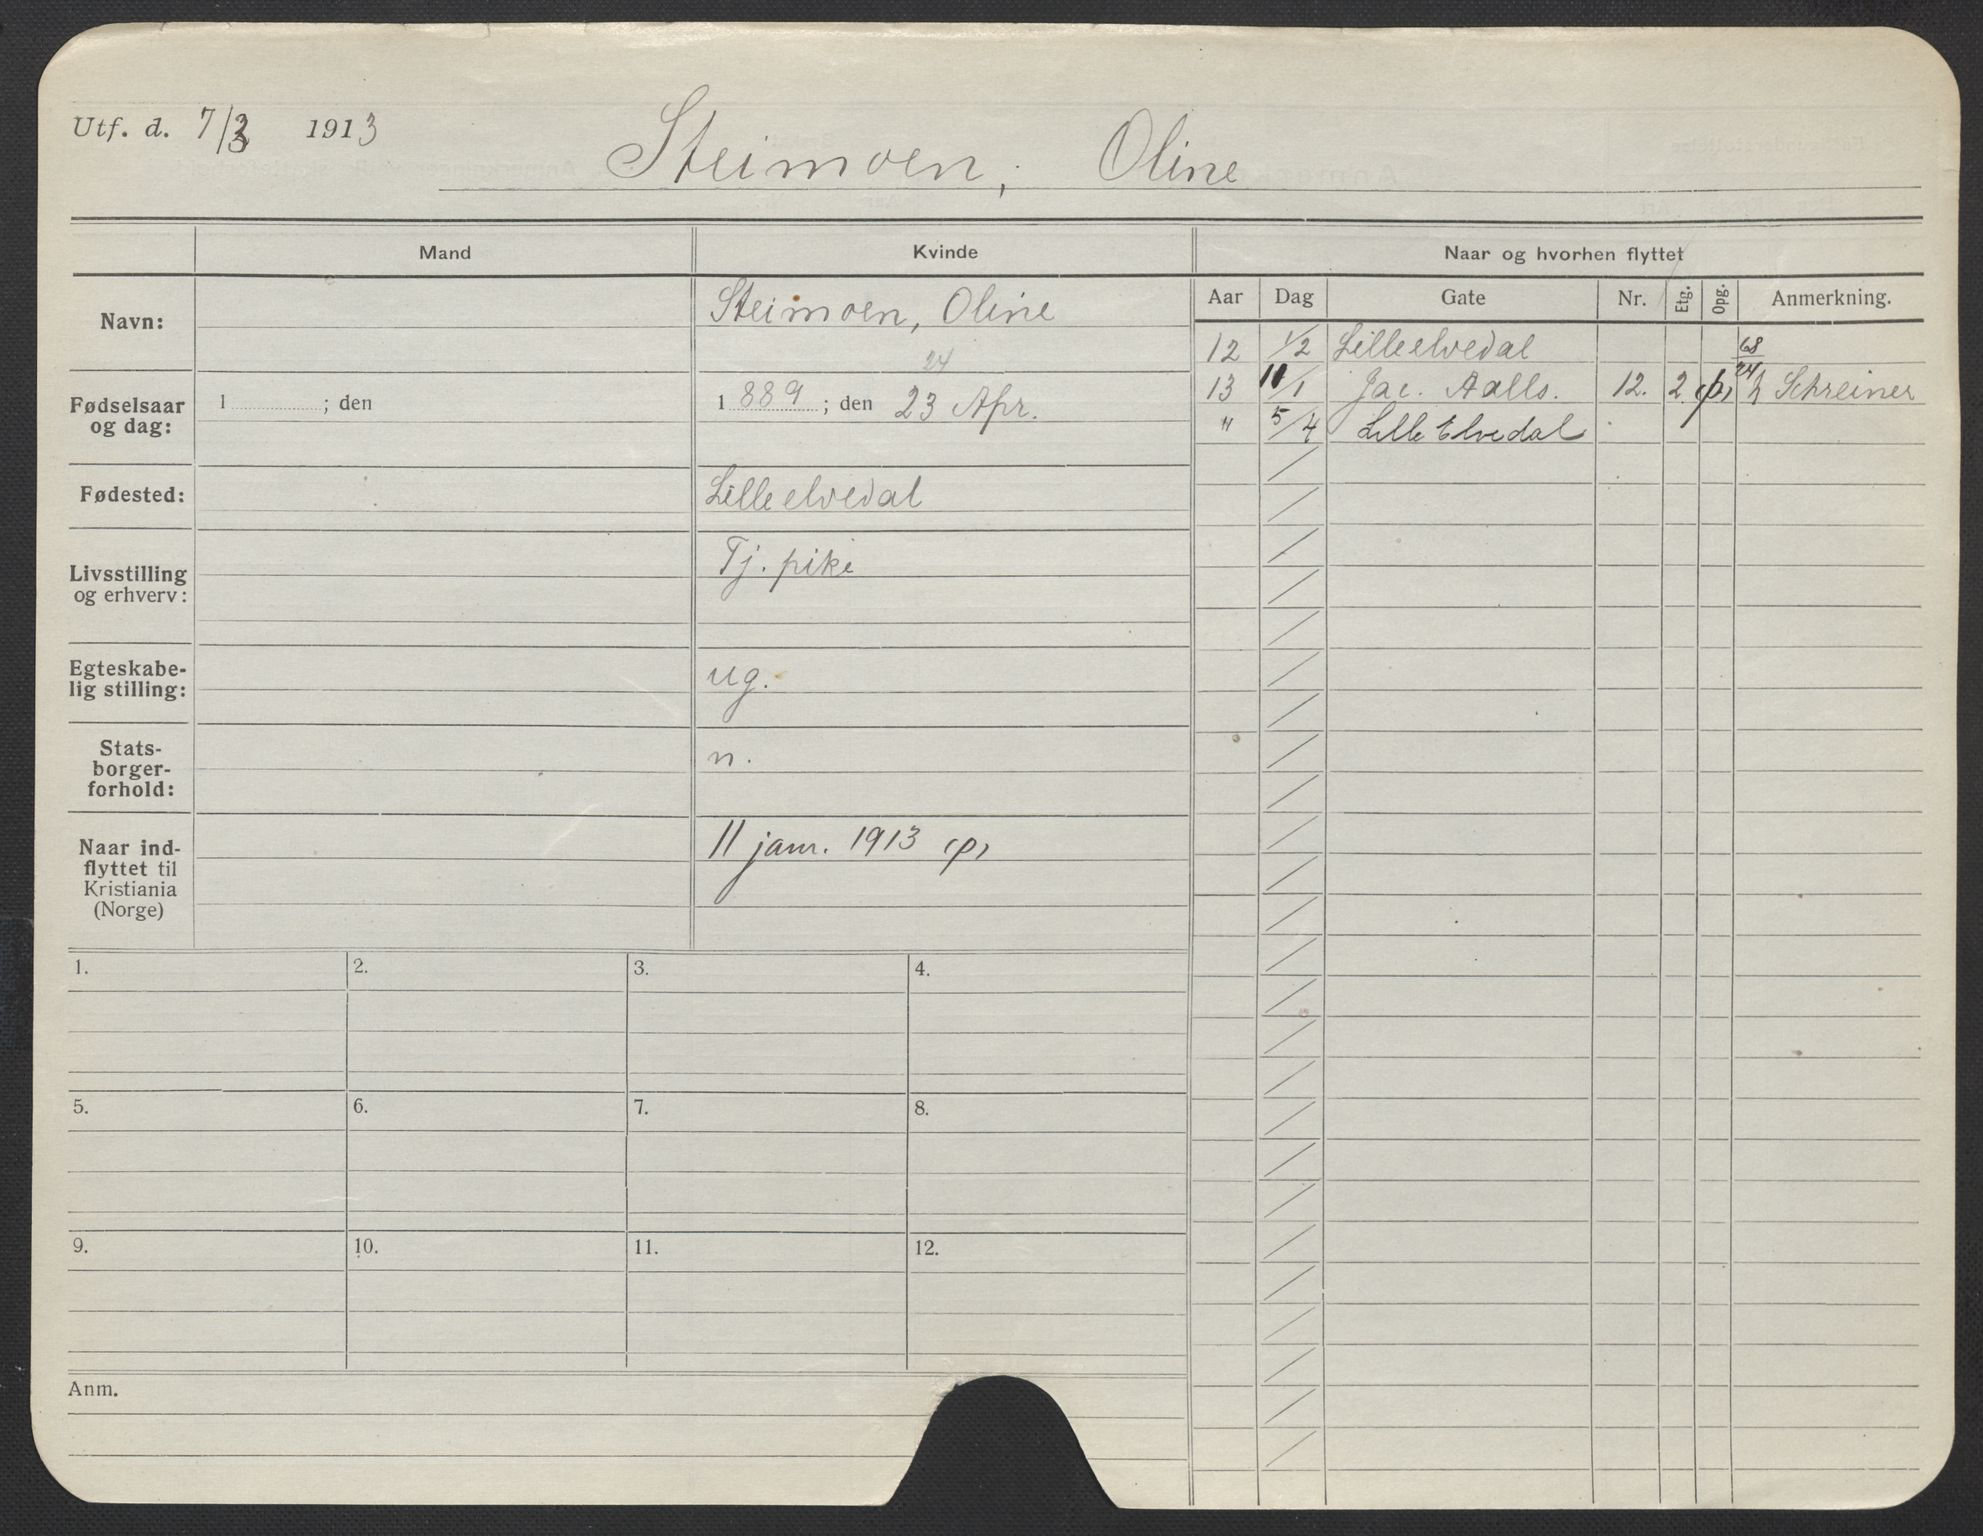 Utf. d. 7/3 1913
Steimoen, Oline
Mand
Kvinde
Naar og hvorhen flyttet
Navn:
Steimoen, Oline
Fødselsaar og dag:
1 ; den
24
1889 ; den 23 Apr.
Fødested:
Lilleelvedal
Livsstilling og erhverv:
Tj. pike
Egteskabe-
lig stilling:
ug.
Stats-
borger-
forhold:
n.
Naar ind-
flyttet til
Kristiania
(Norge)
11 janr. 1913 (p)
Aar Dag Gate Nr. Etg. Opg. Anmerkning.
12 1/2 Lilleelvedal 68/24
13 11/1 Jac. Aalls. 12. 2 (p) Schreiner
" 5/4 Lille Elvedal
1. 2. 3. 4.
5. 6. 7. 8.
9. 10. 11. 12.
Anm.